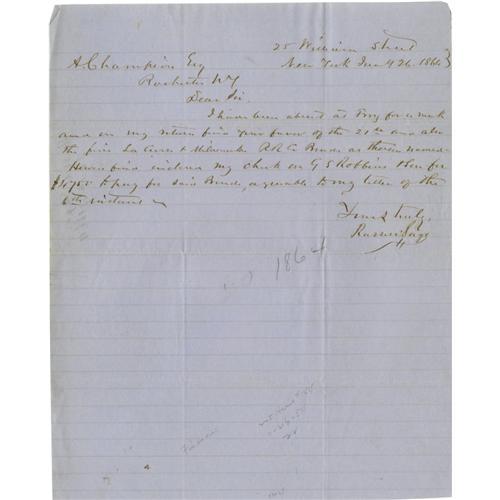 25 William Street
New York Jany 26. 1864
A Champion Esq
Rochester NY
Dear Sir.
I have been absent at Troy for a week
and on my return find your favor of the 21st and also
the five La Crosse & Milwaukee R.R. Co Bonds as therein named
Herein find inclosed my check on G S Robbins & Son for
$4750 to pay for said Bonds, agreeable to my letter of the
6th instant
Yours truly,
Russell Sage
1864